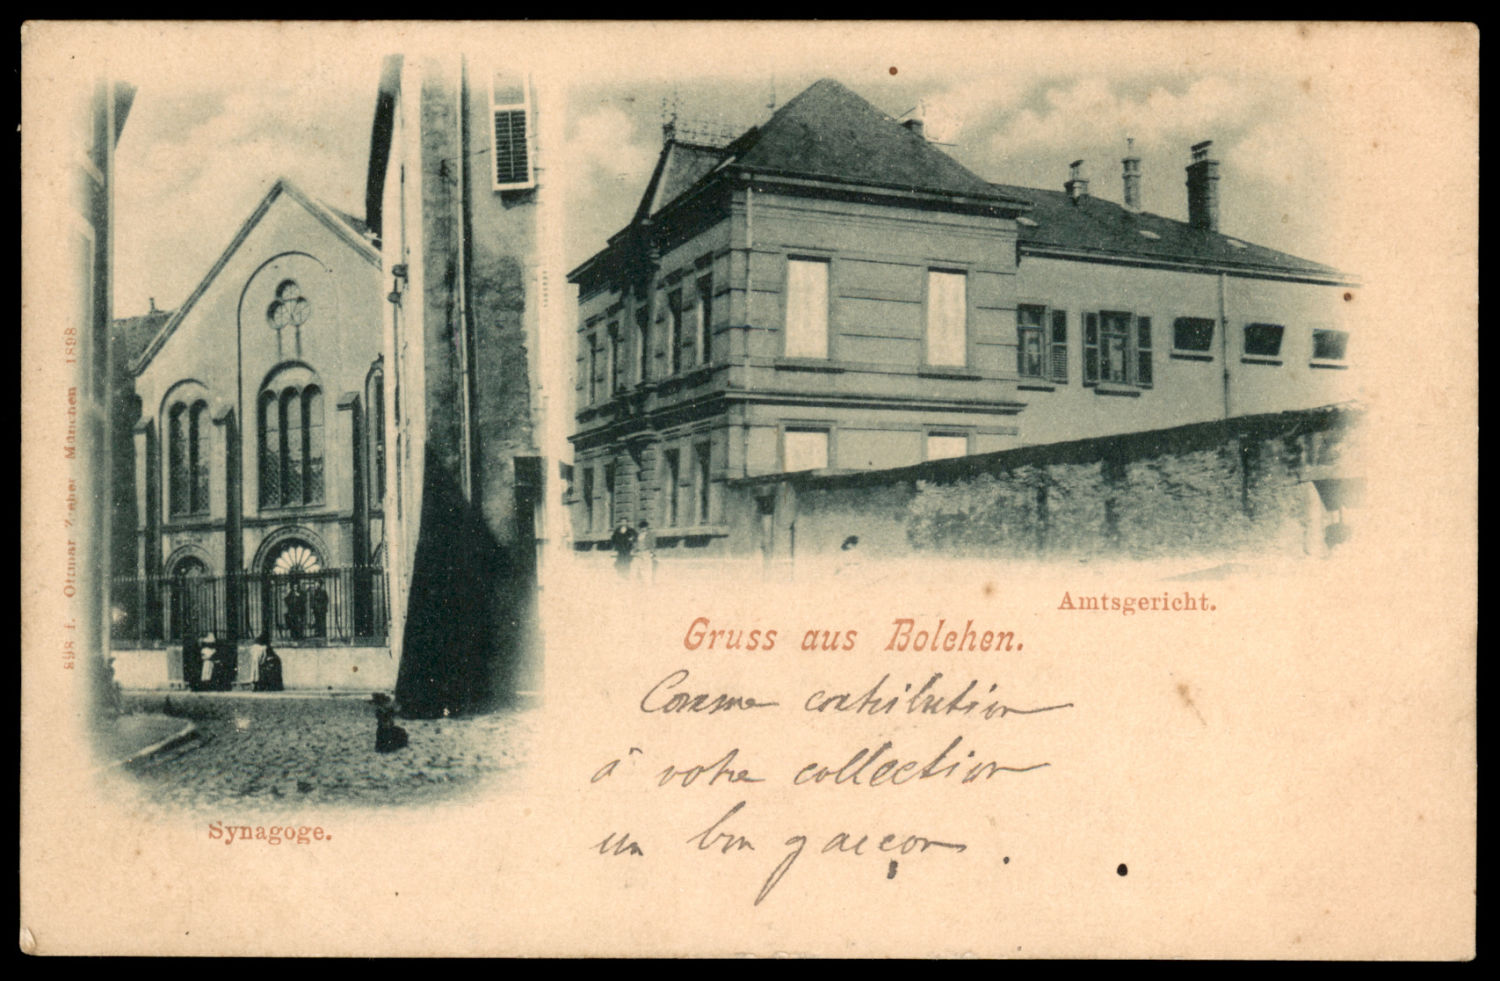 898 i. Ottmar Zieher München 1898
Synagoge.
Amtsgericht.
Gruss aus Bolchen.
Comme contribution
à votre collection
un bon garçon.